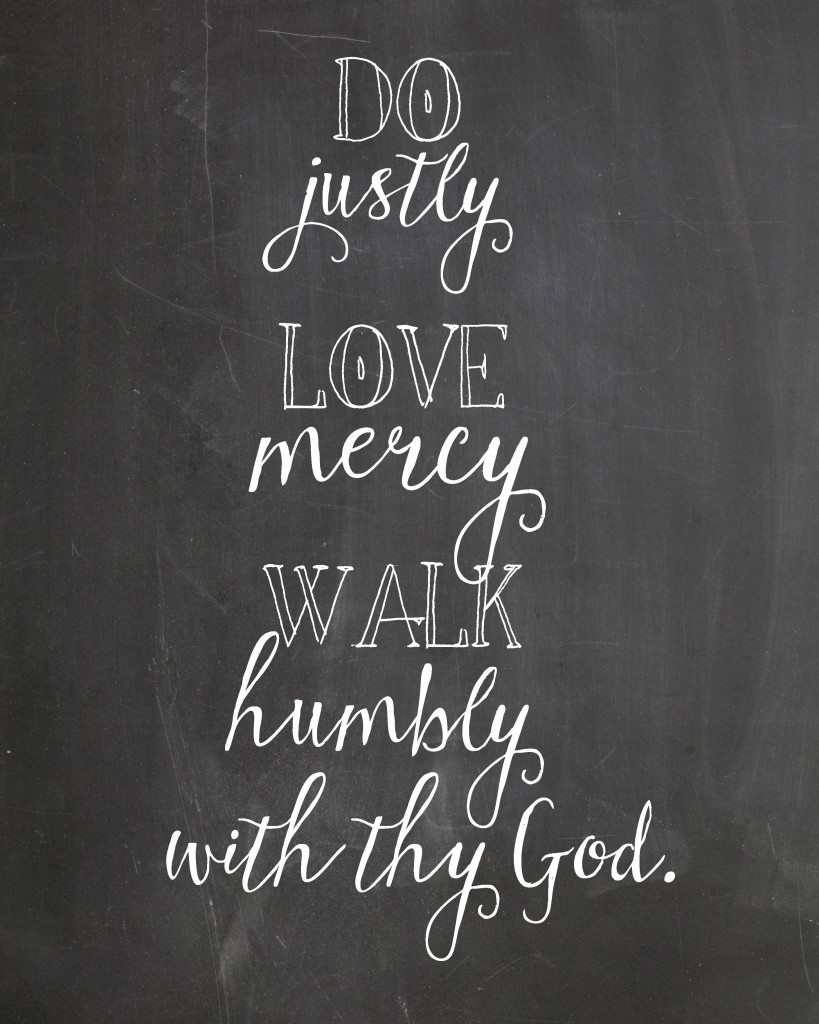 DO
justly
LOVE
mercy
WALK
humbly
with thy God.